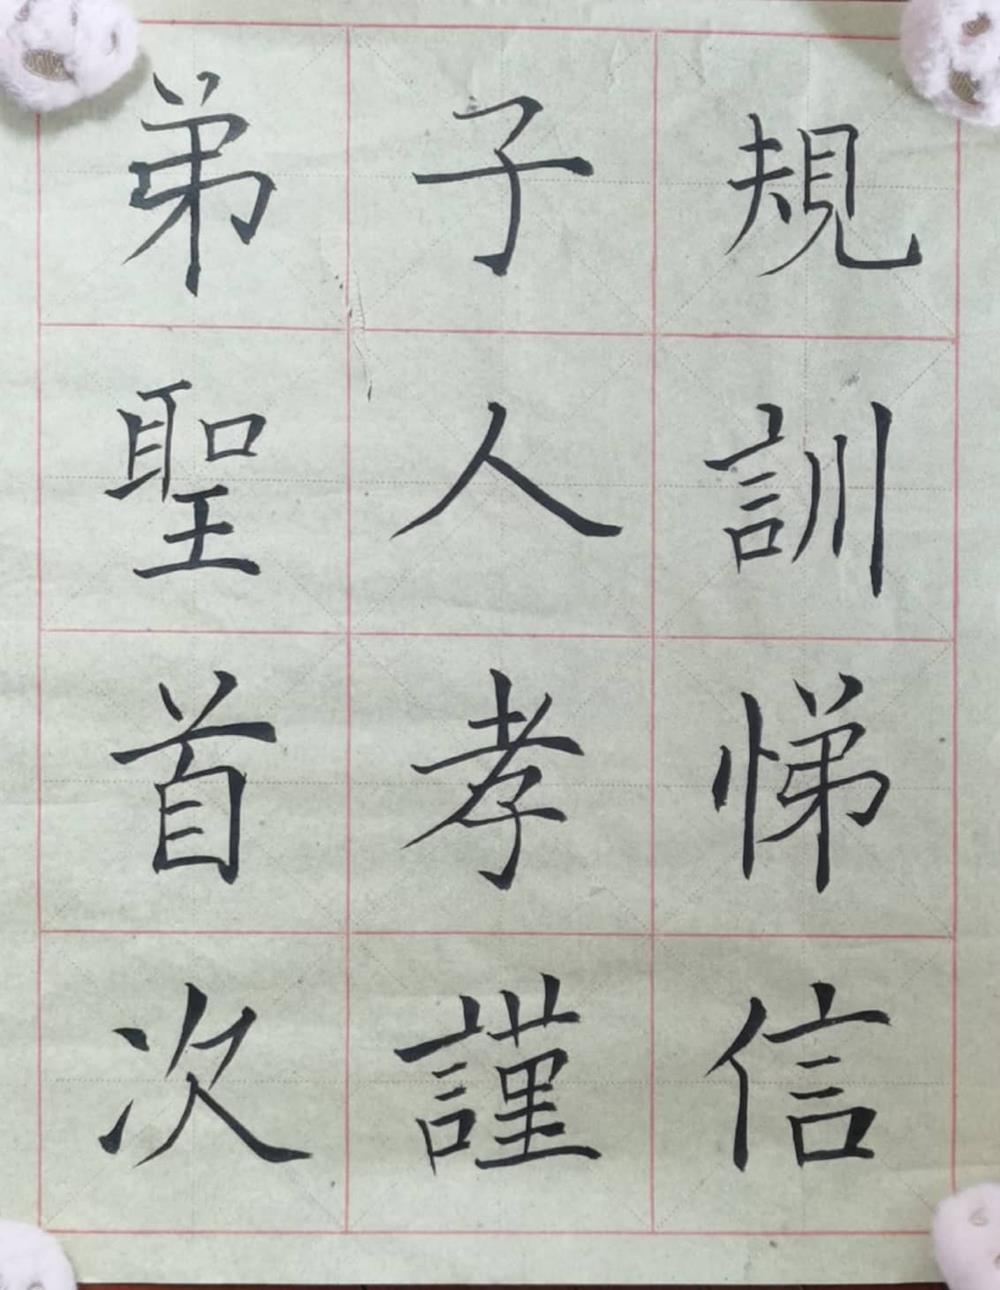 弟子規
聖人訓
首孝悌
次謹信